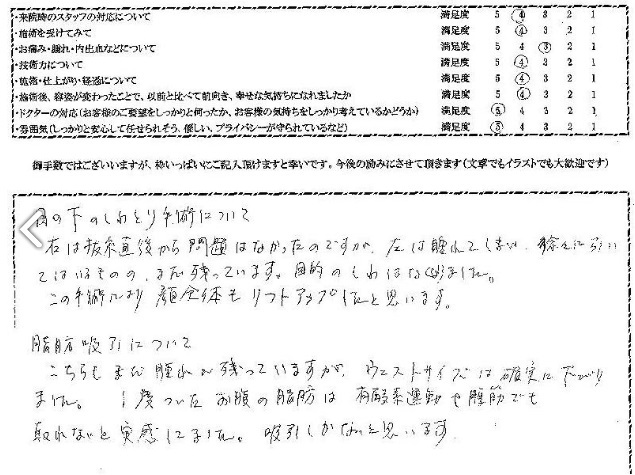 ・来院時のスタッフの対応について 満足度 5 4 3 2 1
・施術を受けてみて 満足度 5 4 3 2 1
・お痛み・腫れ・内出血などについて 満足度 5 4 3 2 1
・技術力について 満足度 5 4 3 2 1
・施術・仕上がり・経過について 満足度 5 4 3 2 1
・施術後、容姿が変わったことで、以前と比べて前向き、幸せな気持ちになれましたか 満足度 5 4 3 2 1
・ドクターの対応(お客様のご要望をしっかりと伺ったか、お客様の気持ちをしっかり考えているかどうか) 満足度 5 4 3 2 1
・雰囲気(しっかりと安心して任せられそう、優しい、プライバシーが守られているなど) 満足度 5 4 3 2 1
御手数ではございいますが、枠いっぱいにご記入頂けますと幸いです。今後の励みにさせて頂きます(文章でもイラストでも大歓迎です)
目の下のしわとり手術について
右は抜糸直後から問題はなかったのですが、左は腫れてしまい、徐々に引い
てはいるものの、まだ残っています。目的のしわはなくなりました。
この手術により顔全体もリフトアップしたと思います。
脂肪吸引について
こちらもまだ腫れが残っていますが、ウエストサイズは確実に下がり
ました。1度ついたお腹の脂肪は有酸素運動や腹筋でも
取れないと実感してました。吸引しかないと思います。